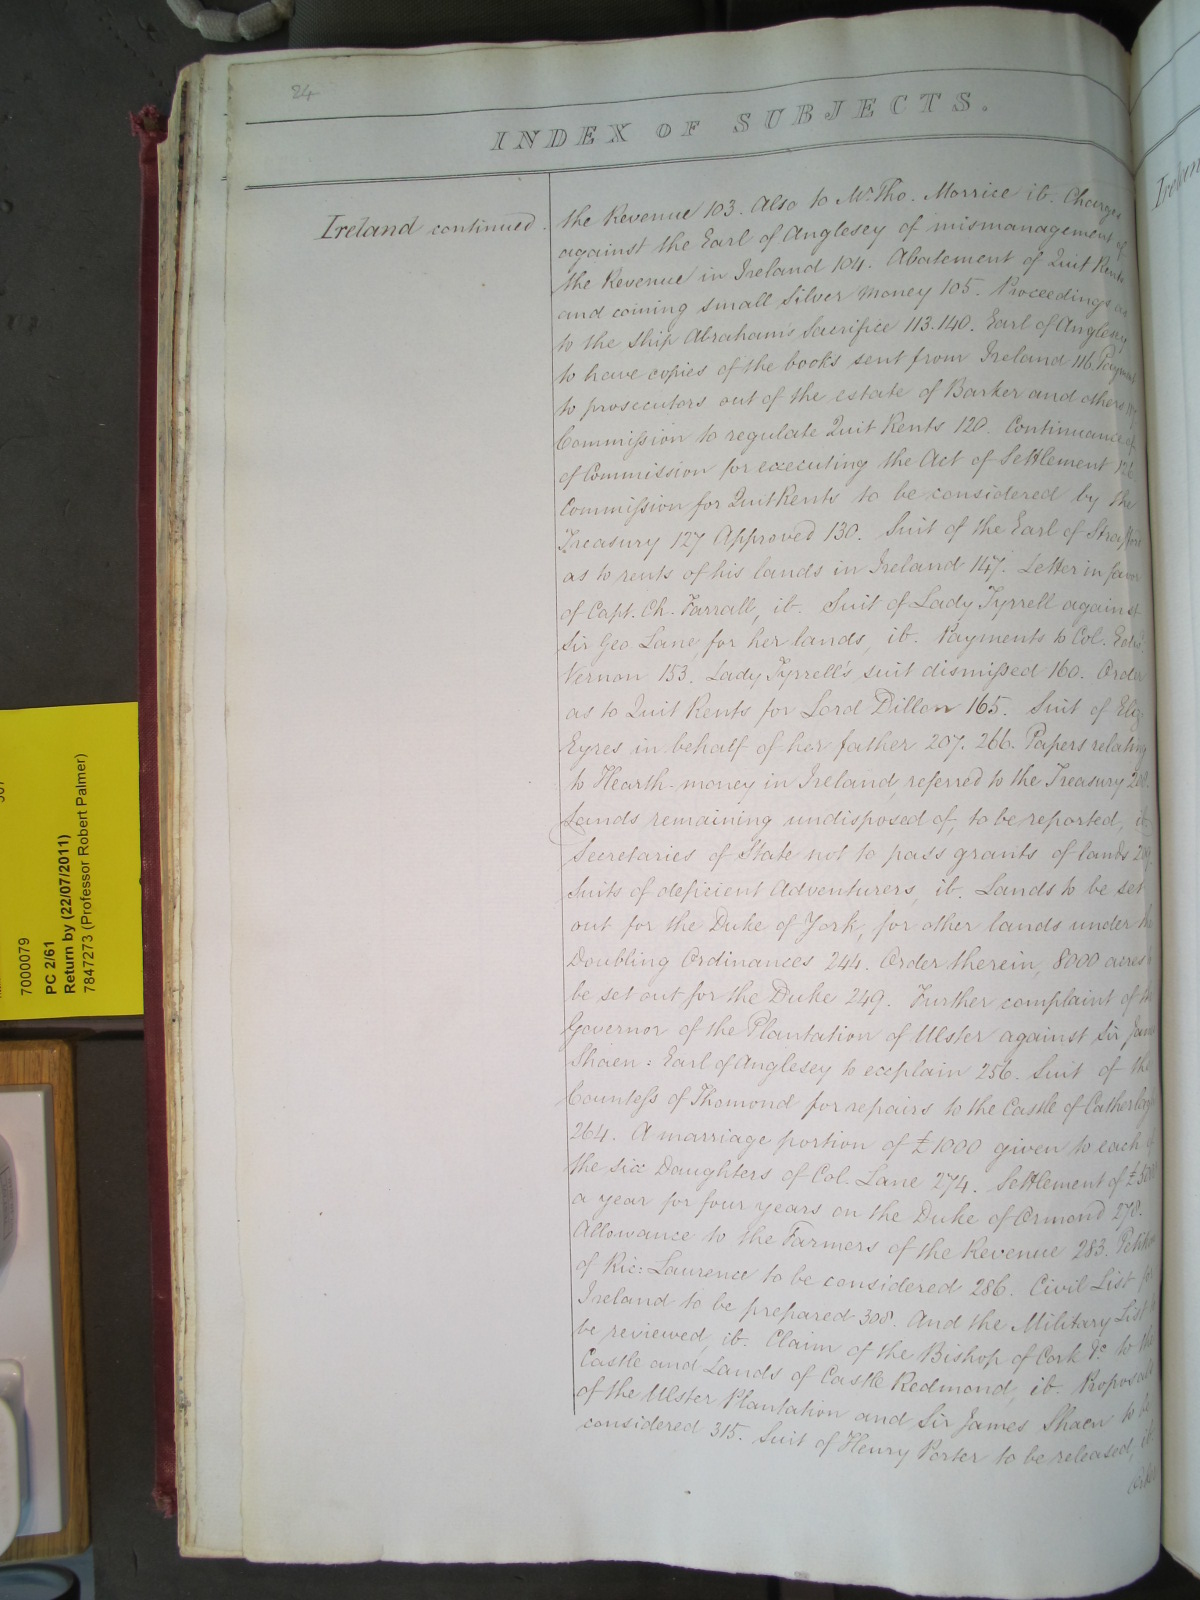 24
INDEX OF SUBJECTS.
Ireland continued.
the Revenue 103. Also to Mr. Tho. Morrice ib. Charges
against the Earl of Anglesey of mismanagement of
the Revenue in Ireland 104. Abatement of Quit Rents
and coining small Silver Money 105. Proceedings as
to the Ship Abraham's Sacrifice 113. 140. Earl of Anglesey
to have copies of the books sent from Ireland 116. Payment
to prosecutors out of the estate of Barker and others
Commission to regulate Quit Rents 120. Continuance of
of Commission for executing the Act of Settlement
Commission for Quit Rents to be considered by the
Treasury 127 Approved 130. Suit of the Earl of Strafford
as to rents of his lands in Ireland 147. Letter in favor
of Capt. Ch. Farrall, ib. Suit of Lady Tyrrell against
Sir Geo. Lane, for her lands, ib. Payments to Col. Edwd.
Vernon 153. Lady Tyrrell's suit dismissed 160. Order
as to Quit Rents for Lord Dillon 165. Suit of Eliz.
Eyres in behalf of her father 207. 266. Papers relating
to Hearth-money in Ireland, referred to the Treasury
Lands remaining undisposed of, to be reported, ib
Secretaries of State not to pass grants of lands
Suits of deficient Adventurers, ib. Lands to be set
out for the Duke of York, for other lands under the
Doubling Ordinances 244. Order therein, 8000 acres to
be set out for the Duke 249. Further complaint of the
Governor of the Plantation of Ulster against Sir James
Shaen: Earl of Anglesey to explain 256. Suit of the
Countess of Thomond for repairs to the Castle of Catherlogh
264. A marriage portion of £1000 given to each of
the six Daughters of Col. Lane 274. Settlement of £5000
a year for four years on the Duke of Ormond 278.
Allowance to the Farmers of the Revenue 283. Petition
of Ric: Laurence to be considered 286. Civil List for
Ireland to be prepared 308. And the Military List to
be reviewed, ib. Claim of the Bishop of Cork &c. to the
Castle and Lands of Castle Redmond, ib. Proposals
of the Ulster Plantation and Sir James Shaen to be
considered 315. Suit of Henry Porter to be released, ib.
Order
7000079
PC 2/61
Return by (22/07/2011)
7847273 (Professor Robert Palmer)